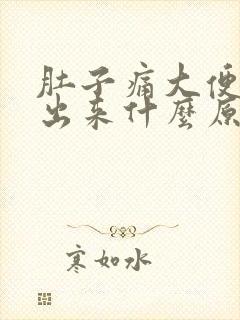 肚子痛大便
出来什麼原
寒如水